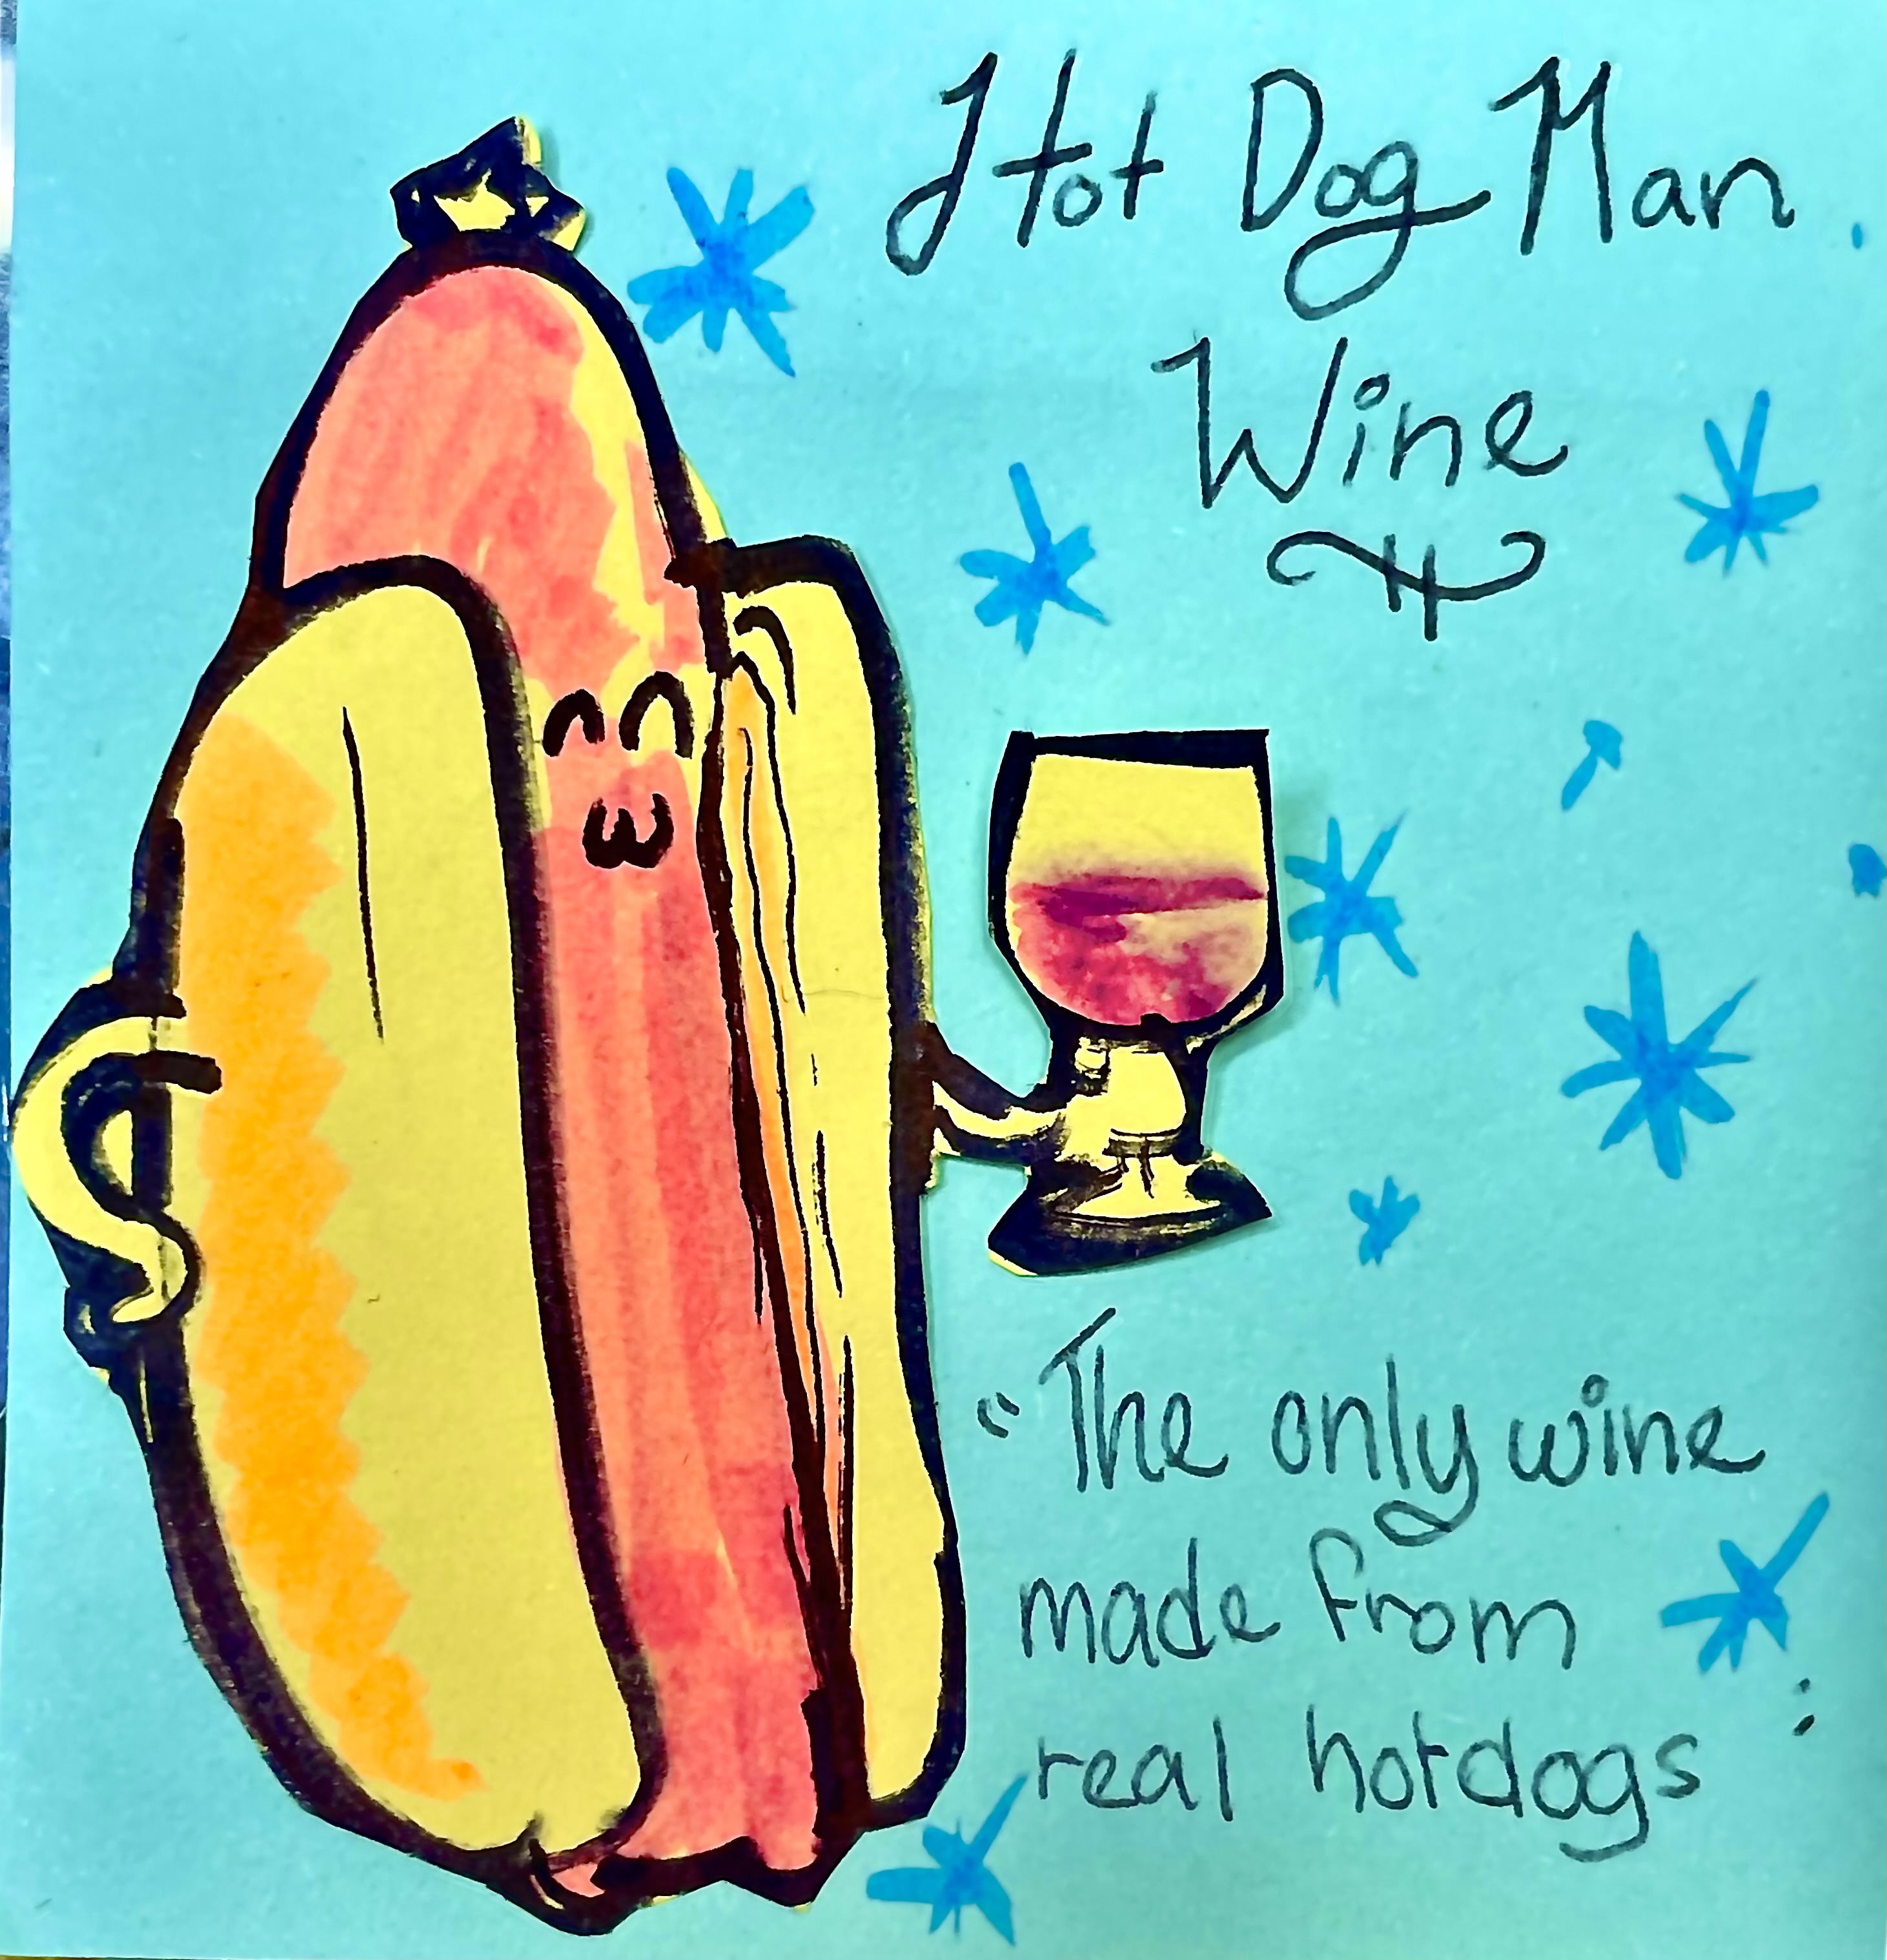 Hot Dog Man
Wine
"The only wine
made from
real hotdogs"